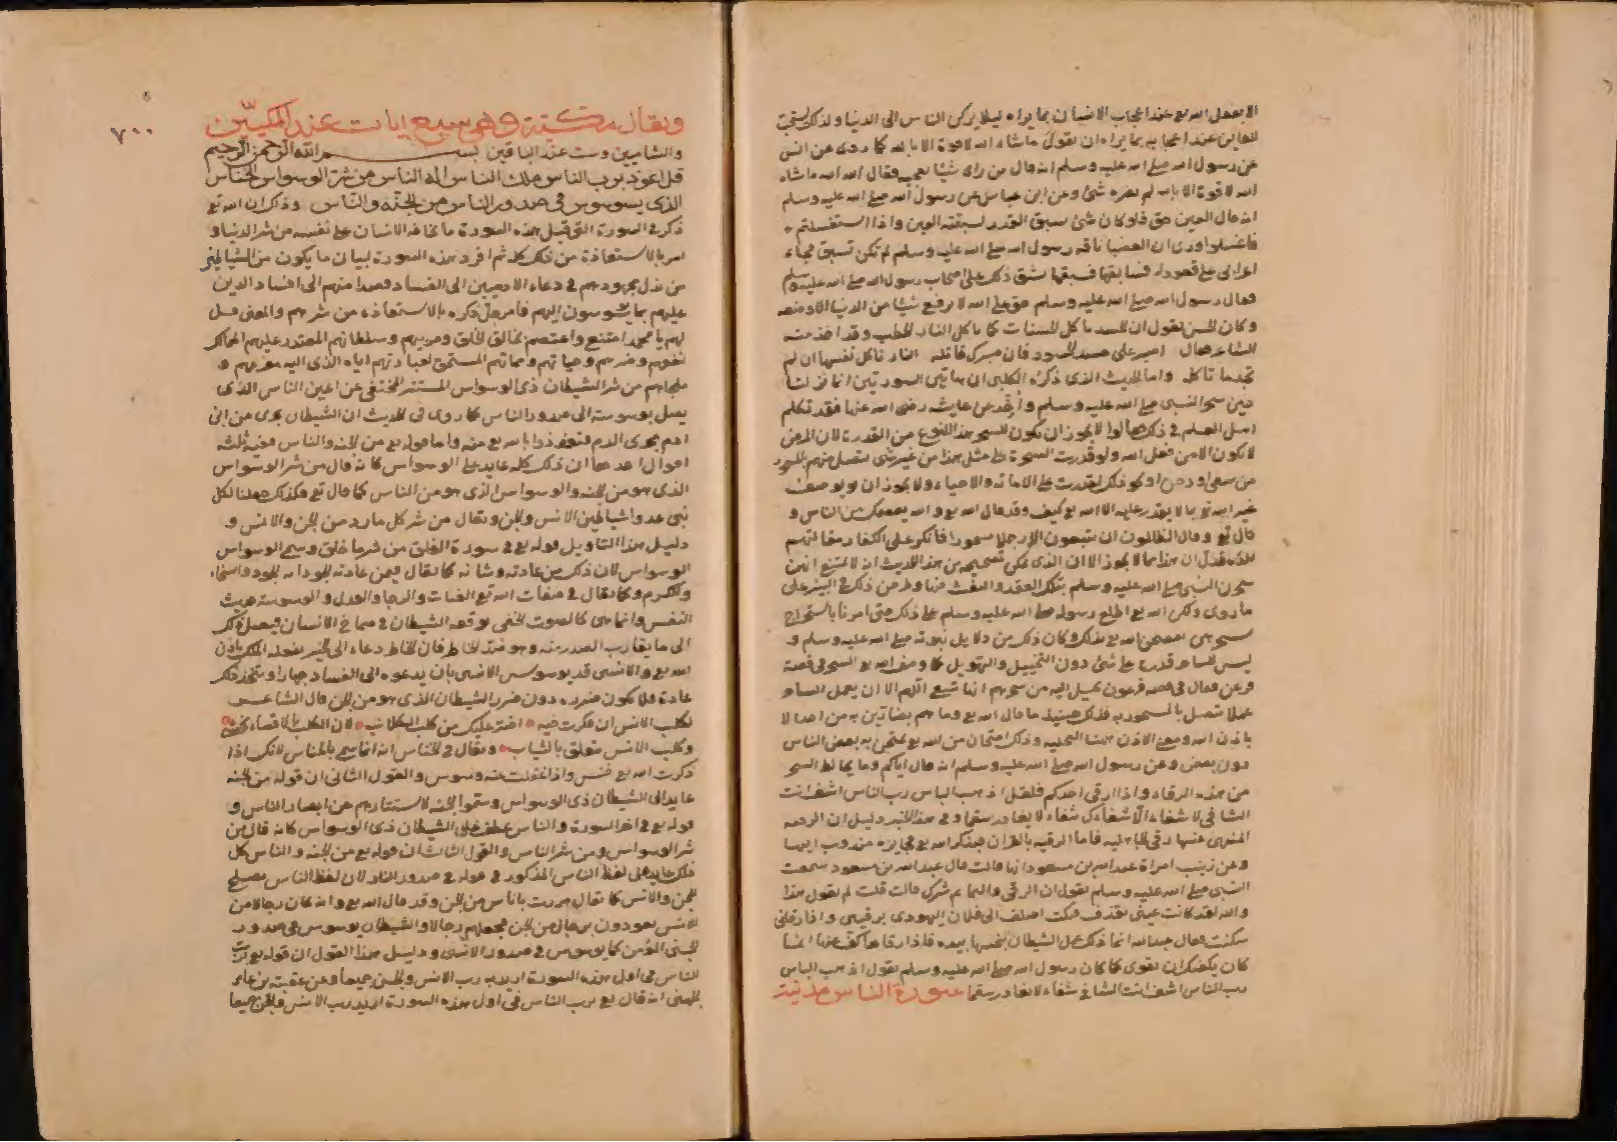 الا بفعل الله تع عند اعجاب الانسان بما يراه ليلا يركن الناس الى الدنيا ولذلك يستحب
للعاين عند اعجابه بما يراه ان يقول ما شاء الله لا قوة الا بالله كما روى عن انس
عن رسول الله صلى الله عليه وسلم انه قال من راى شيئا يعجبه فقال الله الله ما شاء
الله لا قوة الا بالله لم يضره شئ وعن ابن عباس عن رسول الله صلى الله عليه وسلم
انه قال العين حق فلو كان شئ سبق القدر لسبقته العين واذا استغسلتم
فاغسلوا وروى ان العضبا ناقه رسول الله صلى الله عليه وسلم لم تكن تسبق فجاء
اعرابى على قعود له فسابقها فسبقها فشق ذلك على اصحاب رسول الله صلى الله عليه وسلم
فقال رسول الله صلى الله عليه وسلم حق على الله لا يرفع شيئا من الدنيا الا وضعه
وكان الحسن يقول ان الحسد ياكل الحسنات كما ياكل النار الحطب وقد اخذ منه
الشاعر فقال اصبر على حسد الحسود فان صبرك قاتله النار تاكل نفسها ان لم
تجد ما تاكله واما الحديث الذى ذكره الكلبى ان هاتين السورتين انما نزلتا
حين سحر النبى صلى الله عليه وسلم عن عايشه رضى الله عنها فقد تكلم
اهل العلم فى ذلك فقالوا لا يجوز ان يكون للسحر هذا النوع من القدرة لان المرض
لا يكون الا من فعل الله ولو قدرت السحرة على مثل هذا من غير شئ يتصل منهم بالمسحور
من سقى او دخن او نحو ذلك لقدرت على الاماته والاحياء ولا يجوز ان يوصف
غير الله تع بما لا يقدر عليه الا الله تع كيف وقد قال الله تع والله يعصمك من الناس و
قال تع وقال الظالمون ان تتبعون الا رجلا مسحورا فانكر على الكفار مقالتهم
فدل ان هذا مما لا يجوز الا ان الذى يمكن تصحيحه من هذا الحديث انه لا يمتنع ان من
سحر النبى صلى الله عليه وسلم بتلك العقد والنفث فيها وطرحن ذلك فى البير على
ما روى ذلك الله تع اطلع رسوله صلى الله عليه وسلم على ذلك حتى امرنا باستخراج
بذلك وكان ذلك من دلايل نبوته صلى الله عليه وسلم و
ليس للساحر قدرة على شئ دون التخييل والتهويل كما وصف الله تع السحر فى قصة
فرعون فقال فى قصه فرعون يخيل اليه من سحرهم انها تسعى اللهم الا ان يعمل الساحر
عملا يتصل بالمسحور به فذلك حينيذ ما قال الله تع وما هم بضارين به من احد الا
باذن الله ومعنى الاذن ههنا التخليه وذلك امتحان من الله تع يمتحن به بعض الناس
دون بعض وعن رسول الله صلى الله عليه وسلم انه قال اياكم وما يخالط السحر
من هذه الرقاء واذا رقى احدكم فليقل اذهب الباس رب الناس اشف انت
الشافى لا شفاء الا شفاءك شفاء لا يغادر سقما وفى هذا الخبر دليل ان الرقيه
المنهى عنها رقى الجاهليه فاما الرقيه بالقران وبذكر الله تع فجايزه مندوب اليها
وعن زينب امراة عبد الله بن مسعود انها قالت قال عبد الله بن مسعود سمعت
النبى صلى الله عليه وسلم يقول ان الرقى والتمايم شرك قالت قلت لم تقول هذا
والله لقد كانت عينى تقذف فكنت اختلف الى فلان اليهودى يرقينى واذا رقانى
سكنت فقال عبد الله انما ذلك عمل الشيطان ينخسها بيده فاذا رقاها كف عنها انما
كان يكفيك ان تقولى كما كان رسول الله صلى الله عليه وسلم يقول اذهب الباس
رب الناس اشف انت الشافى شفاء لا يغادر سقما سورة الناس مدنية
ويقال مكية وهى سبع ايات عند المكيين
٧٠٠
والشاميين وست عند الباقين بسم الله الرحمن الرحيم
قل اعوذ برب الناس ملك الناس اله الناس من شر الوسواس الخناس
الذى يوسوس فى صدور الناس من الجنة والناس وذلك ان الله تع
ذكر فى السورة التى قبل هذه السورة ما يخافه الانسان على نفسه من شر الدنيا و
امر بالاستعاذة من ذلك كله ثم افرد بهذه السورة لبيان ما يكون من الشياطين
من بذل مجهودهم فى دعاء الادميين الى الفساد قصدا منهم الى افساد الدين
عليهم بما يوسوسون اليهم فامر جل ذكره بالاستعاذه من شرهم والمعنى قل
لهم يا محمد امتنع واعتصم بخالق الخلق ومربيهم وسلطانهم المقتدر عليهم المالك
لنفعهم وضرهم وحياتهم ومماتهم المستحق لعبادتهم اياه الذى اليه مفزعهم و
ملجاهم من شر الشيطان ذى الوسواس المستتر المختفى عن اعين الناس الذى
يصل بوسوسته الى صدور الناس كما روى فى الحديث ان الشيطان يجرى من ابن
ادم مجرى الدم فتعوذوا بالله تع منه واما قوله تع من الجنه والناس ففيه ثلثه
اقوال احدها ان ذلك كله عايد على الوسواس كانه قال من شر الوسواس
الذى هو من الجنه والوسواس الذى هو من الناس كما قال تع وكذلك جعلنا لكل
نبى عدوا شياطين الانس والجن ويقال من شر كل مارد من الجن والانس و
دليل هذا التاويل قوله تع فى سورة الفلق من شر ما خلق وسمى الوسواس
الوسواس لان ذلك من عادته وشانه كما يقال فيمن عادته الجود انه الجود والسخاء
والكرم وكما يقال فى صفات الله تع الغياث والرجا والعدل والوسوسه حديث
النفس وانما هى كالصوت الخفى يوقعه الشيطان فى صماخ الانسان فيصل ذلك
الى ما يقارب الصدر منه وهو ضد الخاطر فان الخاطر دعاء الى الخير يفعله الملك باذن
الله تع والانسى قد يوسوس الانسى بان يدعوه الى الفساد جهارا ويتخذ ذلك
عادة فلا يكون ضرره دون ضرر الشيطان الذى هو من الجن قال الشاعر
لكلب الانس ان فكرت فيه اضر عليك من كلب الكلاب لان الكلب ان اقصاه
وكلب الانس متعلق بالثياب ويقال فى الخناس انه انما سمى بالخناس لانك اذا
ذكرت الله تع خنس واذا غفلت عنه وسوس والقول الثانى ان قوله من الجنه
عايد الى الشيطان ذى الوسواس وسموا الجنه لاستتارهم عن ابصار الناس و
قوله تع فى اخر السورة والناس عطف على الشيطان ذى الوسواس كانه قال من
شر الوسواس ومن شر الناس والقول الثالث ان قوله تع من الجنه والناس كل
ذلك عايد على لفظ الناس المذكور فى قوله فى صدور الناس لان لفظ الناس يصلح
للجن والانس كما يقال مررت باناس من الجن وقد قال الله تع وانه كان رجال من
الانس يعوذون برجال من الجن فجعلهم رجالا والشيطان يوسوس فى صدور
الجنى المؤمن كما يوسوس فى صدور الانس ودليل هذا القول ان قوله تع برب
الناس فى اول هذه السورة اريد به رب الانس والجن جميعا وعن عقبة بن عامر
الجهنى انه قال تع برب الناس فى اول هذه السورة اريد رب الانس والجن جميعا